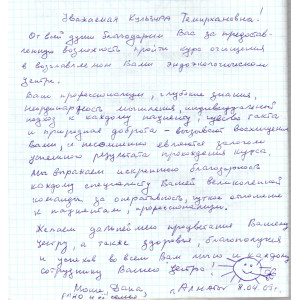 Уважаемая Кульзира Темирхановна!
От всей души благодарим Вас за предостав-
ленную возможность пройти курс очищения
в возглавляемом Вами эндоэкологическом
Центре.
Ваш профессионализм, глубокие знания,
неординарность мышления, индивидуальный
подход к каждому пациенту, чувство такта
и природная доброта - вызывают восхищение
вами, и несомненно являются залогом
успешного результата прохождения курса.
Мы выражаем искреннюю благодарность
каждому специалисту Вашей великолепной
команды за оперативность, чуткое отношение
к пациентам, профессионализм.
Желаем дальнейшего процветания Вашему
центру, а также здоровья, благополучия
и успехов во всем Вам лично и каждому
сотруднику Вашего Центра!
Дана, г. Алматы 8.04.05г.